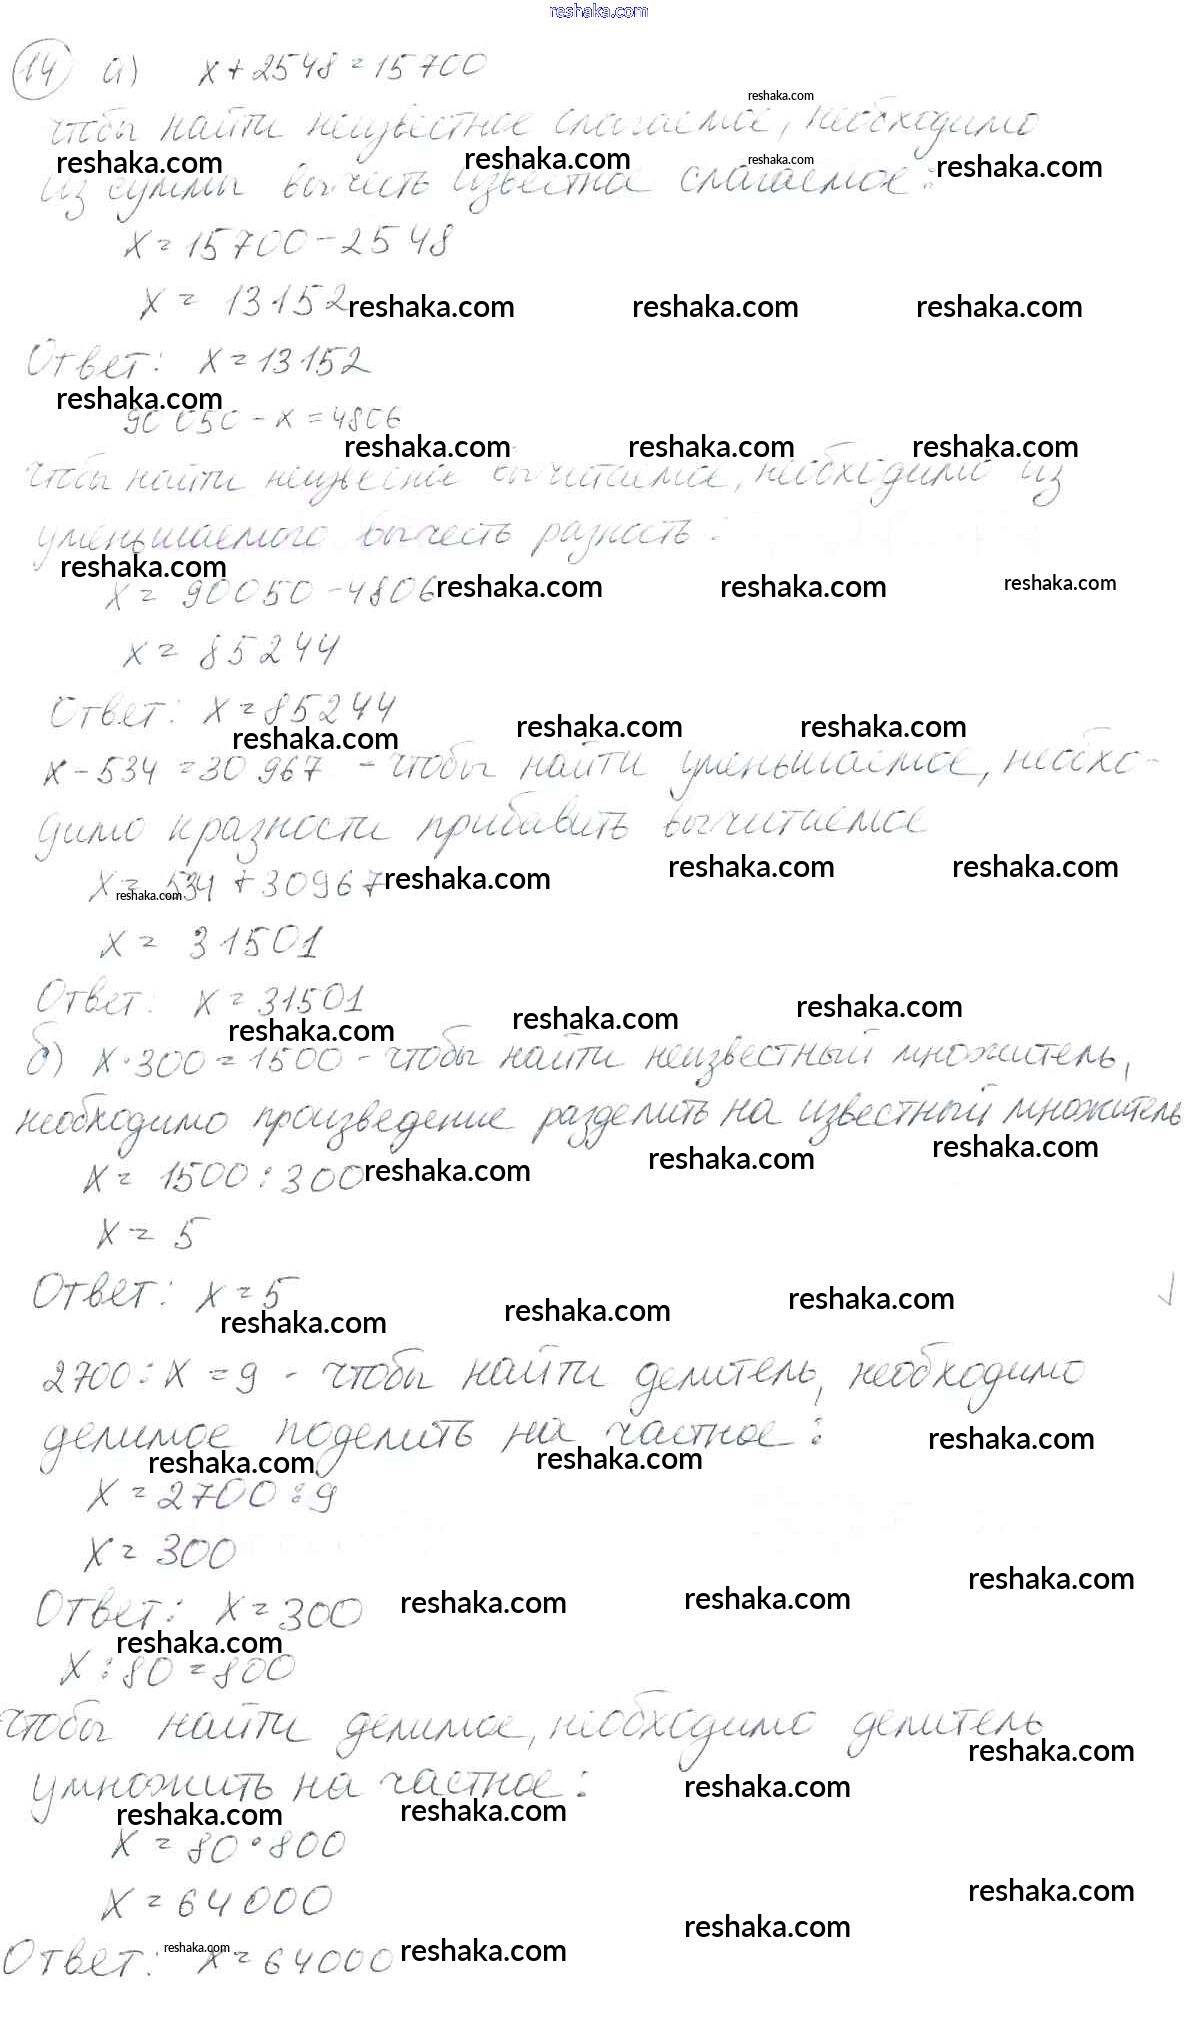 reshaka.com
14 а) x + 2548 = 15700
reshaka.com
чтобы найти неизвестное слагаемое, необходимо
reshaka.com reshaka.com reshaka.com reshaka.com
из суммы вычесть известное слагаемое:
x = 15700 - 2548
x = 13152 reshaka.com reshaka.com reshaka.com
Ответ: x = 13152
reshaka.com
90050 - x = 4806
reshaka.com reshaka.com reshaka.com
чтобы найти неизвесное вычитаемое, необходимо из
уменьшаемого вычесть разность:
reshaka.com reshaka.com reshaka.com reshaka.com
x = 90050 - 4806
x = 85244
Ответ: x = 85244
reshaka.com reshaka.com reshaka.com
x - 534 = 30967 - чтобы найти уменьшаемое, необхо-
димо к разности прибавить вычитаемое
reshaka.com reshaka.com reshaka.com
x = 534 + 30967
reshaka.com
x = 31501
Ответ: x = 31501
reshaka.com reshaka.com reshaka.com
б) x · 300 = 1500 - чтобы найти неизвестный множитель,
необходимо произведение разделить на известный множитель
reshaka.com reshaka.com reshaka.com
x = 1500 : 300
x = 5
Ответ: x = 5
reshaka.com reshaka.com reshaka.com
2700 : x = 9 - чтобы найти делитель, необходимо
делимое поделить на частное:
reshaka.com reshaka.com reshaka.com
x = 2700 : 9
x = 300
Ответ: x = 300 reshaka.com reshaka.com reshaka.com
reshaka.com
x : 80 = 800
чтобы найти делимое, необходимо делитель
reshaka.com
умножить на частное:
reshaka.com reshaka.com reshaka.com
x = 80 · 800
x = 64000
reshaka.com reshaka.com
Ответ: x = 64000
reshaka.com reshaka.com